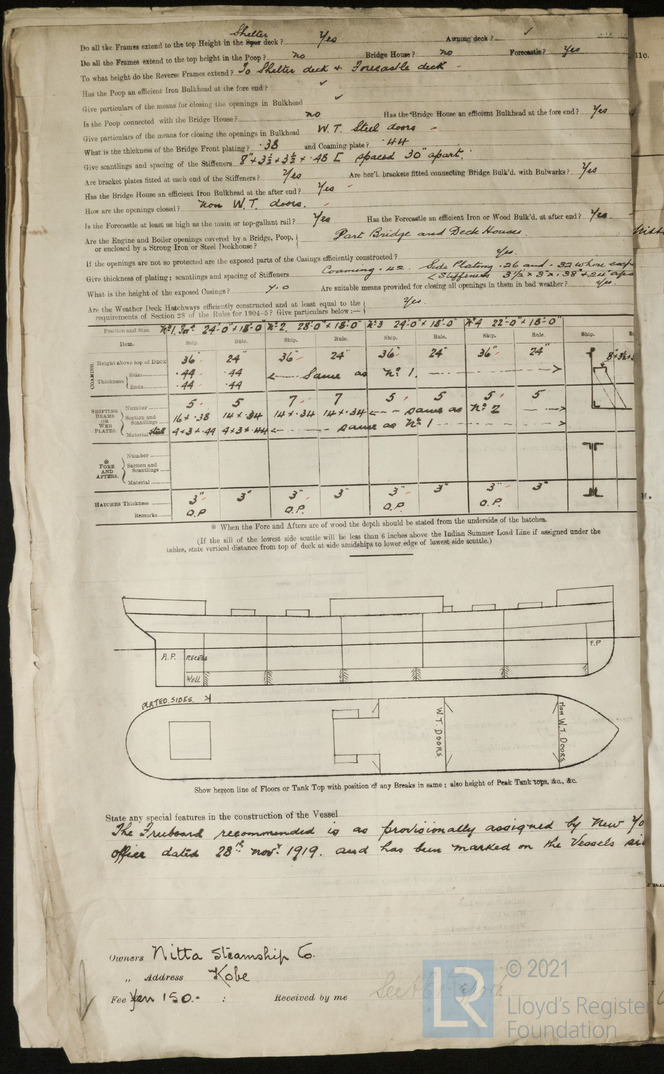 Do all the Frames extend to the top Height in the Shelter deck? Yes Awning deck?
Do all the Frames extend to the top height in the Poop? no Bridge House? no Forecastle? Yes
To what height do the Reverse Frames extend? To Shelter deck & Forecastle deck
Has the Poop an efficient Iron Bulkhead at the fore end? ✓
Give particulars of the means for closing the openings in Bulkhead ✓
Is the Poop connected with the Bridge House? no Has the Bridge House an efficient Bulkhead at the fore end? Yes
Give particulars of the means for closing the openings in Bulkhead W.T. Steel doors
What is the thickness of the Bridge Front plating? .38 and Coaming plate? .44
Give scantlings and spacing of the Stiffeners 8" + 3½ + 3½ + .48 [ spaced 30" apart.
Are bracket plates fitted at each end of the Stiffeners? Yes Are hor'l. brackets fitted connecting Bridge Bulk'd. with Bulwarks? Yes
Has the Bridge House an efficient Iron Bulkhead at the after end? Yes
How are the openings closed? non W.T. doors.
Is the Forecastle at least as high as the main or top-gallant rail? Yes Has the Forecastle an efficient Iron or Wood Bulk'd. at after end? Yes
Are the Engine and Boiler openings covered by a Bridge, Poop, or enclosed by a Strong Iron or Steel Deckhouse? Part Bridge and Deck Houses
If the openings are not so protected are the exposed parts of the Casings efficiently constructed? Yes
Give thickness of plating; scantlings and spacing of Stiffeners Coaming .42 Side Plating .26 and .32 where
Stiffeners 3½ × 3 × .38
What is the height of the exposed Casings? 7.0 Are suitable means provided for closing all openings in them in bad weather? Yes
Are the Weather Deck Hatchways efficiently constructed and at least equal to the
requirements of Section 28 of the Rules for 1904-5? Give particulars below:— Yes.
Position and Size. No 1, 24'-0" × 18'-0" No 2 28'-0" × 18'-0" No 3 24'-0" × 18'-0" No 4 22'-0" × 18'-0"
Item. Ship. Rule. Ship. Rule. Ship. Rule. Ship. Rule. Ship.
COAMING Height above top of DECK 36" 24" 36" 24" 36" 24" 36" 24"
Thickness Sides .44 .44 Same as No 1.
Ends .44 .44
SHIFTING BEAMS OR WEB PLATES. Number 5 5 7 7 5 5 5 5
Section and Scantlings 16 × .38 14 × .34 14 × .34 14 × .34 same as No 2
Material steel 4×3×.44 4×3×.44 same as No 1
* FORE AND AFTERS. Number
Section and Scantlings
Material
HATCHES Thickness 3" 3" 3" 3" 3" 3" 3" 3"
Remarks O.P O.P. O.P O.P.
* When the Fore and Afters are of wood the depth should be stated from the underside of the hatches.
(If the sill of the lowest side scuttle will be less than 6 inches above the Indian Summer Load Line if assigned under the
tables, state vertical distance from top of deck at side amidships to lower edge of lowest side scuttle.)
A.P. RECESS F.P
WELL
PLATED SIDES.
W.T. DOORS
Non W.T. DOORS
Show hereon line of Floors or Tank Top with position of any Breaks in same; also height of Peak Tank tops, &c., &c.
State any special features in the construction of the Vessel
The Freeboard recommended is as provisionally assigned by New
office dated 28th novr. 1919. and has been marked on the Vessels
Owners Nitta Steamship Co.
" Address Kobe
Fee Yen 150.- : Received by me
LR
© 2021
Lloyd's Register
Foundation